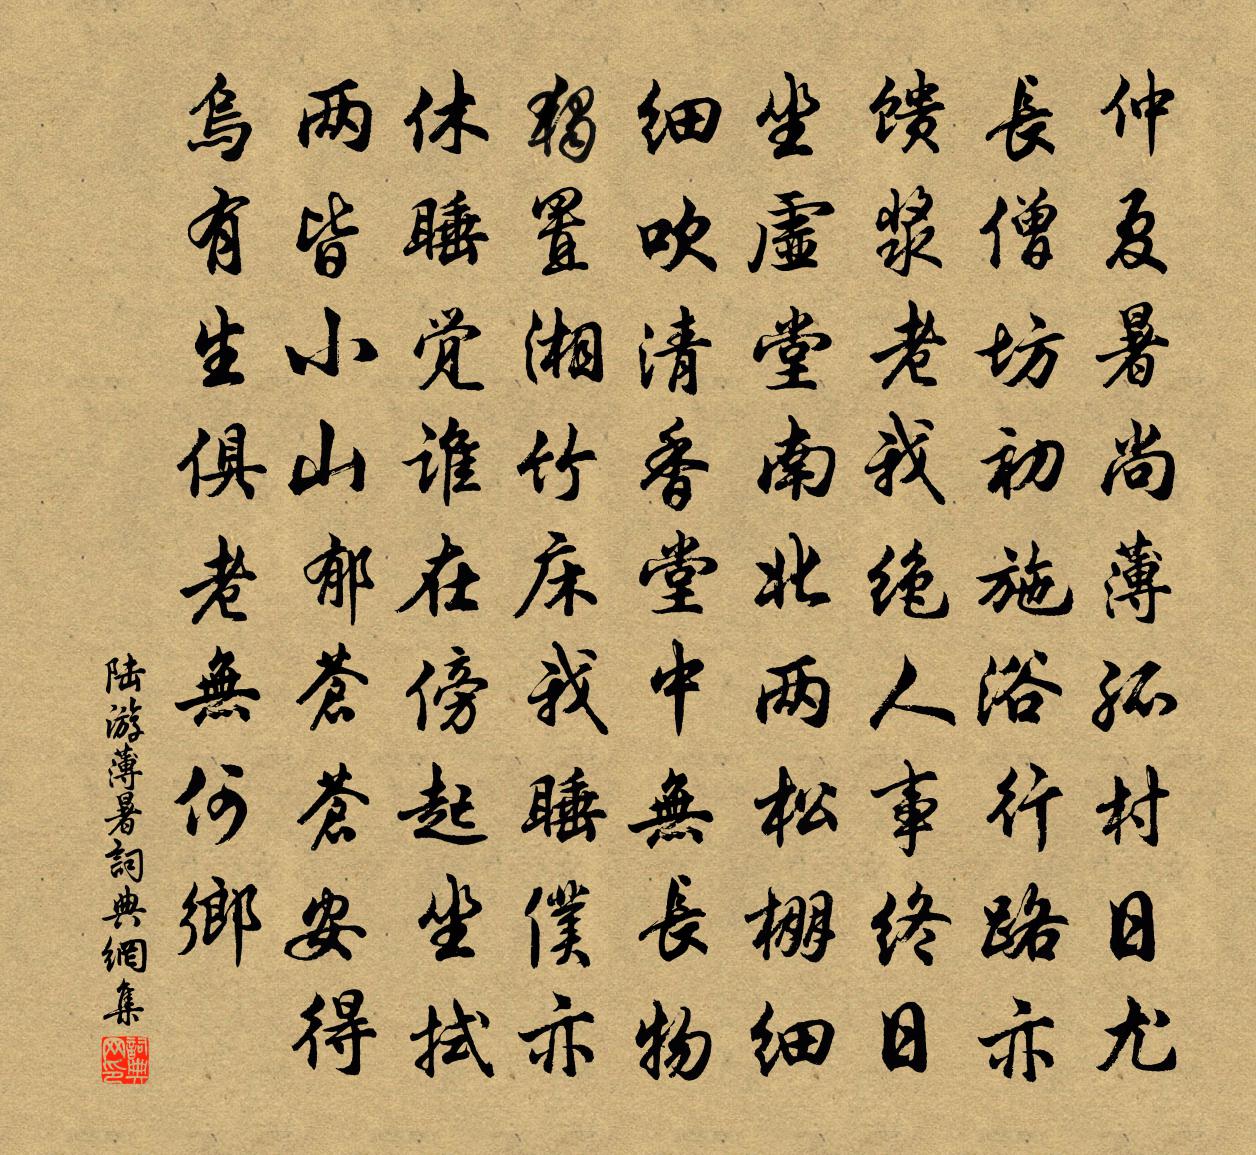 仲夏暑尚薄孤村日尤
長僧坊初施浴行路亦
馈漿老我绝人事终日
坐虚堂南北两松棚细
细吹清香堂中無長物
独置湘竹床我睡僕亦
休睡觉谁在傍起坐拭
两眥小山郁蒼蒼安得
烏有生俱老無何鄉
陆游薄暑詞典網集
詞典网印